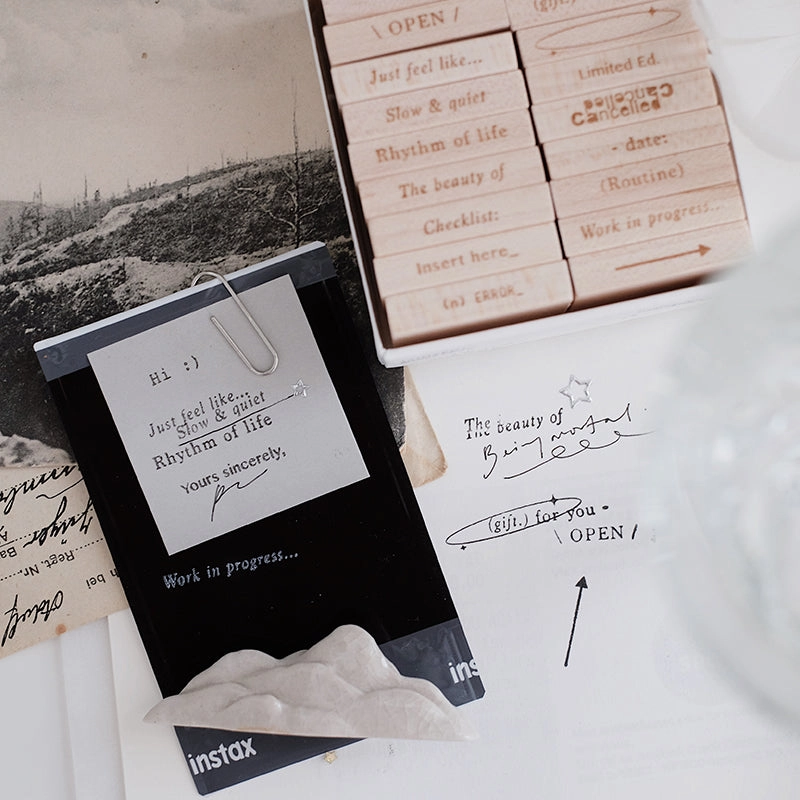 \ OPEN /
Just feel like...
Slow & quiet
Rhythm of life
The beauty of
Checklist:
Insert here_
(n) ERROR_
(gift.)
Limited Ed.
Cancelled
Cancelled
- date:
(Routine)
Work in progress...
Hi :)
Just feel like...
Slow & quiet
Rhythm of life
Yours sincerely,
Work in progress...
instax
ins
The beauty of
Being mortal.
(gift.) for you -
\ OPEN /
Regt. Nr.
h bei
Ba